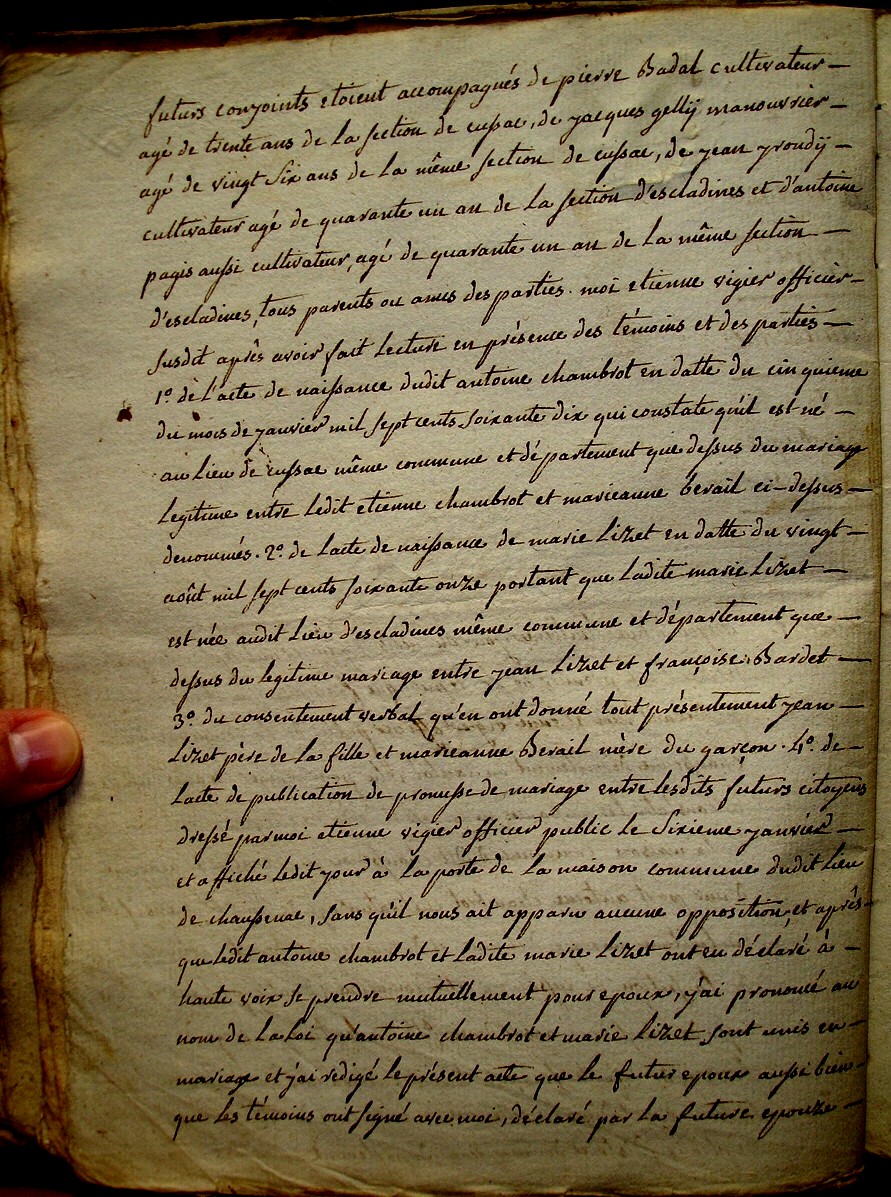 futurs conjoints etoient accompagnés de pierre Badal cultivateur —
agé de trente ans de la section de cussac, de jacques gellÿ manouvrier —
agé de vingt six ans de la même section de cussac, de jean jroudÿ —
cultivateur agé de quarante un an de la section d'escladines et d'antoine
pagis aussi cultivateur, agé de quarante un an de la même section —
d'escladines, tous parents ou amis des parties. moi etienne vigier officier —
susdit après avoir fait lecture en présence des témoins et des parties —
1º de l'acte de naissance dudit antoine chambrot en datte du cinquieme
du mois de janvier mil sept cents soixante dix qui constate qu'il est né —
au lieu de cussac même commune et département que dessus du mariage
legitime entre ledit etienne chambrot et marieanne bérail ci-dessus —
denommés. 2º de lacte de naissance de marie Lizet en datte du vingt —
août mil sept cents soixante onze portant que ladite marie Lizet —
est née audit lieu d'escladines même commune et département que —
dessus du legitime mariage entre jean Lizet et françoise Bardet —
3º du consentement verbal qu'en ont donné tout présentement jean —
Lizet père de la fille et marieanne Berail mère du garçon. 4º de —
lacte de publication de promesse de mariage entre lesdits futurs citoyens
dressé par moi etienne vigier officier public le sixieme janvier —
et affiché ledit jour à la porte de la maison commune dudit lieu
de chaussenac, sans qu'il nous ait apparu aucune opposition, et après —
que ledit antoine chambrot et ladite marie Lizet ont eu déclaré à —
haute voix se prendre mutuellement pour epoux, j'ai prononcé au
nom de la loi qu'antoine chambrot et marie Lizet sont unis en —
mariage et j'ai redigé le présent acte que le futur epoux aussi bien —
que les témoins ont signé avec moi, déclaré par la future epouze —